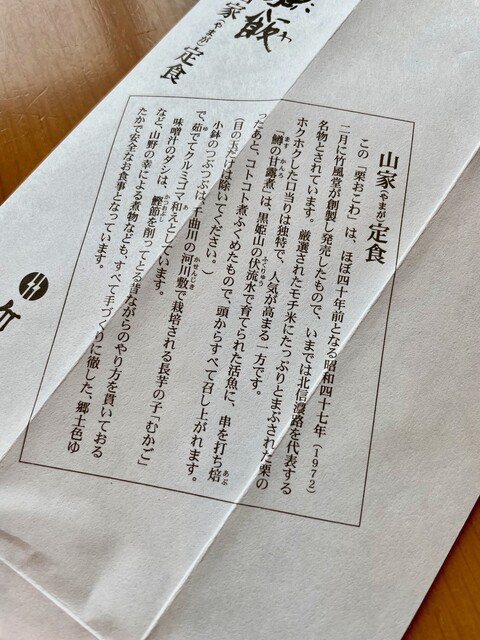 飯
家(やまが)定食
山家(やまが)定食
この「栗おこわ」は、ほぼ四十年前となる昭和四十七年(1972)
二月に竹風堂が創製し発売したもので、いまでは北信濃路を代表する
名物とされています。厳選されたモチ米にたっぷりとまぶされた栗の
ホクホクした口当りは独特で、人気が高まる一方です。
「鱒(ます)の甘露(かんろ)煮」は、黒姫山の伏流水(ふくりゅう)で育てられた活魚に、串を打ち焙(あぶ)
ったあと、コトコト煮ふくめたもので、頭からすべて召し上がれます。
(目の玉だけは除いてください。)
小鉢のつぶつぶは、千曲川の河川敷(かせんじき)で栽培される長芋の子「むかご」
で、茹(ゆ)でてクルミゴマ和(あ)えとしています。
味噌汁のダシは、鰹節(かつおぶし)を削ってとる昔ながらのやり方を貫いておる
など、山野の幸による煮物なども、すべて手づくりに徹した、郷土色ゆ
たかで安全なお食事となっています。
竹